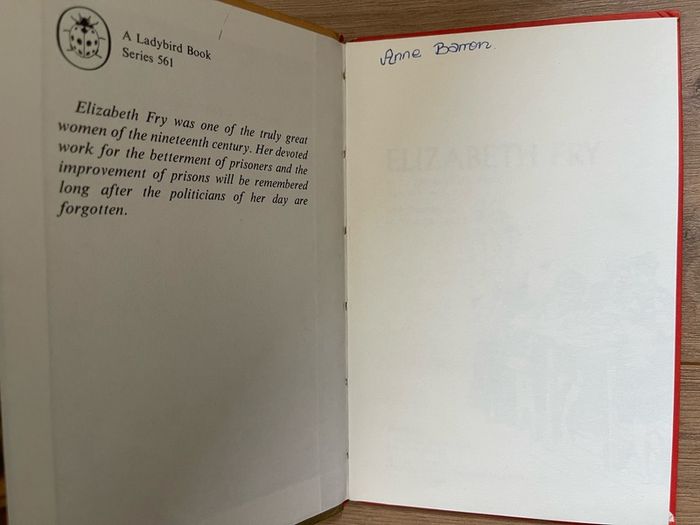 A Ladybird Book
Series 561
Elizabeth Fry was one of the truly great
women of the nineteenth century. Her devoted
work for the betterment of prisoners and the
improvement of prisons will be remembered
long after the politicians of her day are
forgotten.
Anne Barron.
ELIZABETH FRY